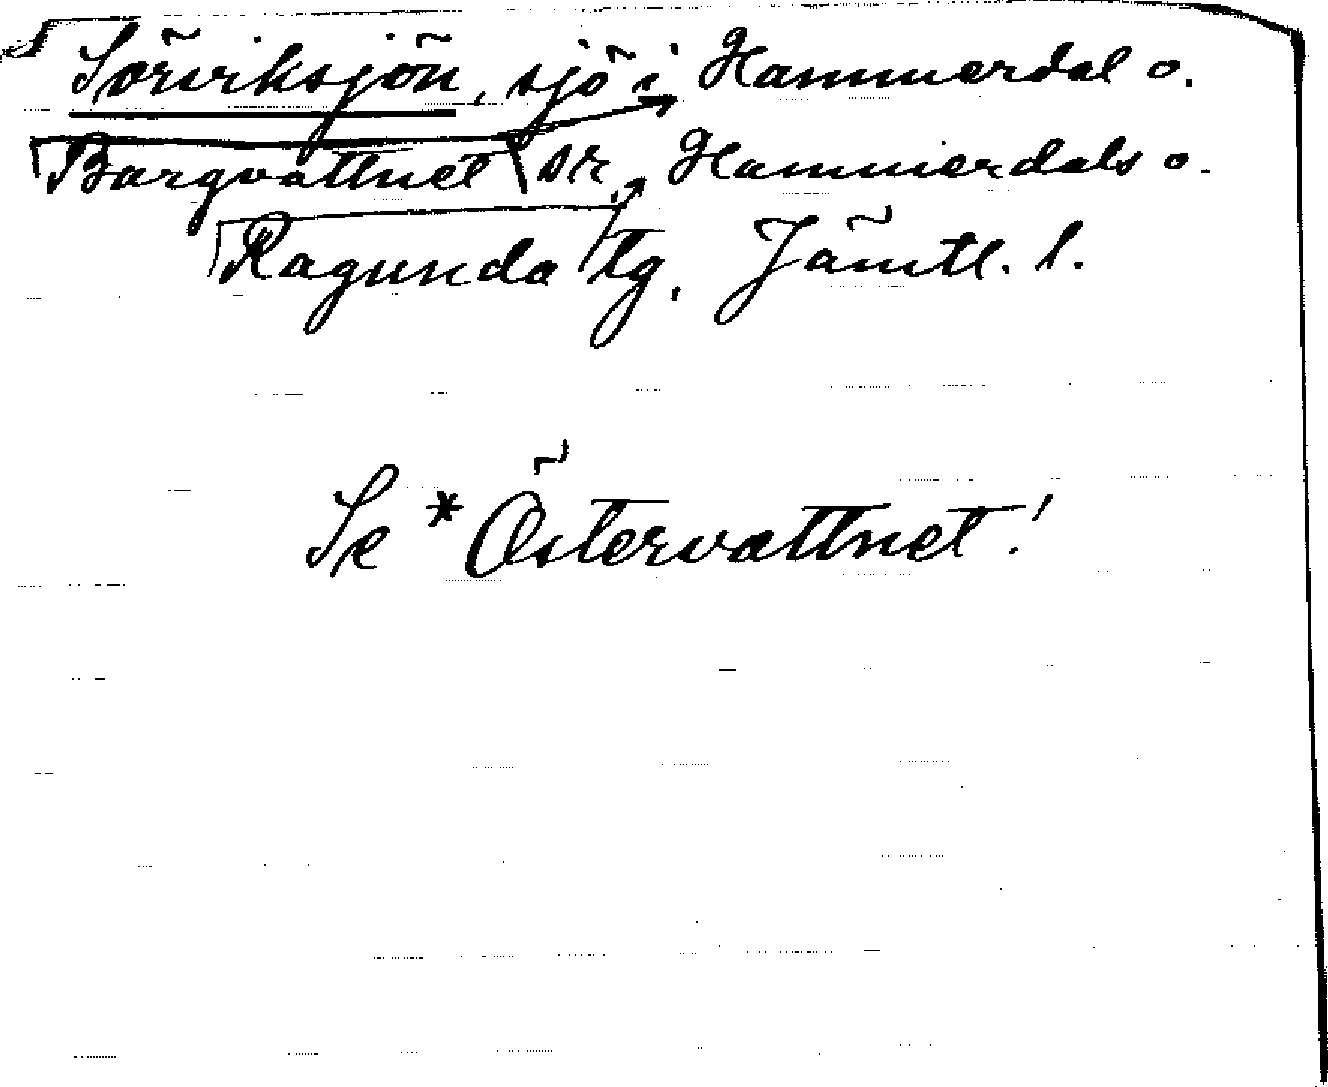 Sörviksjön, sjö i Hammerdal o.
Borgvattnet sn, Hammerdals o.
Ragunda tg, Jämtl. l.
Se *Östervattnet!